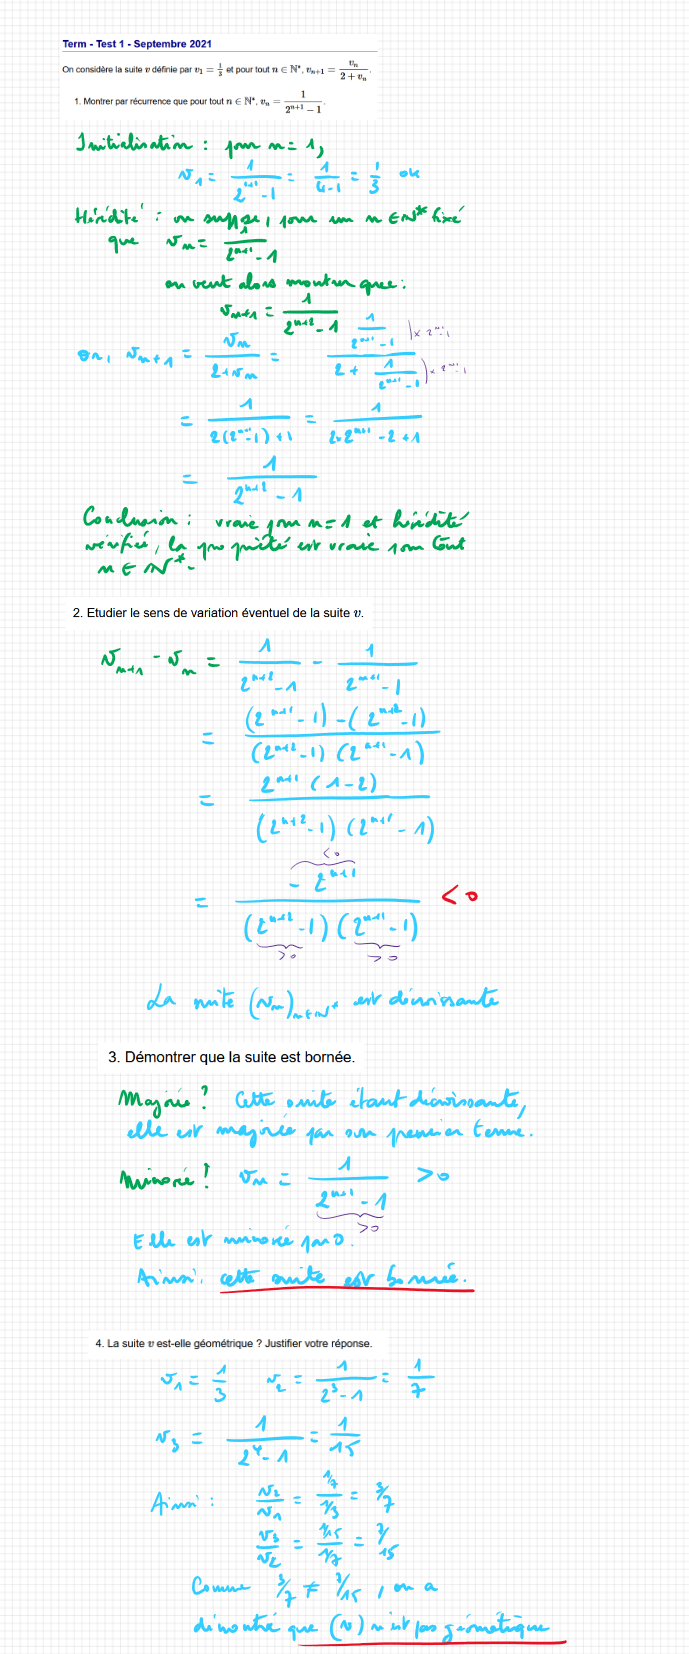 Term - Test 1 - Septembre 2021
On considère la suite v définie par v₁ = 1/3 et pour tout n ∈ ℕ*, vₙ₊₁ = vₙ/(2 + vₙ).
1. Montrer par récurrence que pour tout n ∈ ℕ*, vₙ = 1/(2^(n+1) − 1).
Initialisation : pour n = 1,
v₁ = 1/(2^(1+1) − 1) = 1/(4−1) = 1/3 ok
Hérédité : on suppose, pour un n ∈ ℕ* fixé
que vₙ = 1/(2^(n+1) − 1)
on veut alors montrer que :
vₙ₊₁ = 1/(2^(n+2) − 1)
or, vₙ₊₁ = vₙ/(2+vₙ) = (1/(2^(n+1) − 1))/(2 + 1/(2^(n+1) − 1)) )× 2^(n+1)−1 )× 2^(n+1)−1
= 1/(2(2^(n+1)−1)+1) = 1/(2×2^(n+1) − 2 + 1)
= 1/(2^(n+2) − 1)
Conclusion : vraie pour n = 1 et hérédité
vérifiée, la propriété est vraie pour tout
n ∈ ℕ*.
2. Etudier le sens de variation éventuel de la suite v.
vₙ₊₁ − vₙ = 1/(2^(n+2) − 1) − 1/(2^(n+1) − 1)
= ((2^(n+1) − 1) − (2^(n+2) − 1))/((2^(n+2) − 1)(2^(n+1) − 1))
= 2^(n+1)(1−2)/((2^(n+2) − 1)(2^(n+1) − 1))
<0
= −2^(n+1)/((2^(n+2) − 1)(2^(n+1) − 1)) < 0
>0 >0
La suite (vₙ)n∈ℕ* est décroissante
3. Démontrer que la suite est bornée.
Majorée ? Cette suite étant décroissante,
elle est majorée par son premier terme.
Minorée ? vₙ = 1/(2^(n+1) − 1) > 0
>0
Elle est minorée par 0.
Ainsi, cette suite est bornée.
4. La suite v est-elle géométrique ? Justifier votre réponse.
v₁ = 1/3 v₂ = 1/(2³ − 1) = 1/7
v₃ = 1/(2⁴ − 1) = 1/15
Ainsi : v₂/v₁ = (1/7)/(1/3) = 3/7
v₃/v₂ = (1/15)/(1/7) = 7/15
Comme 3/7 ≠ 7/15, on a
démontré que (v) n'est pas géométrique